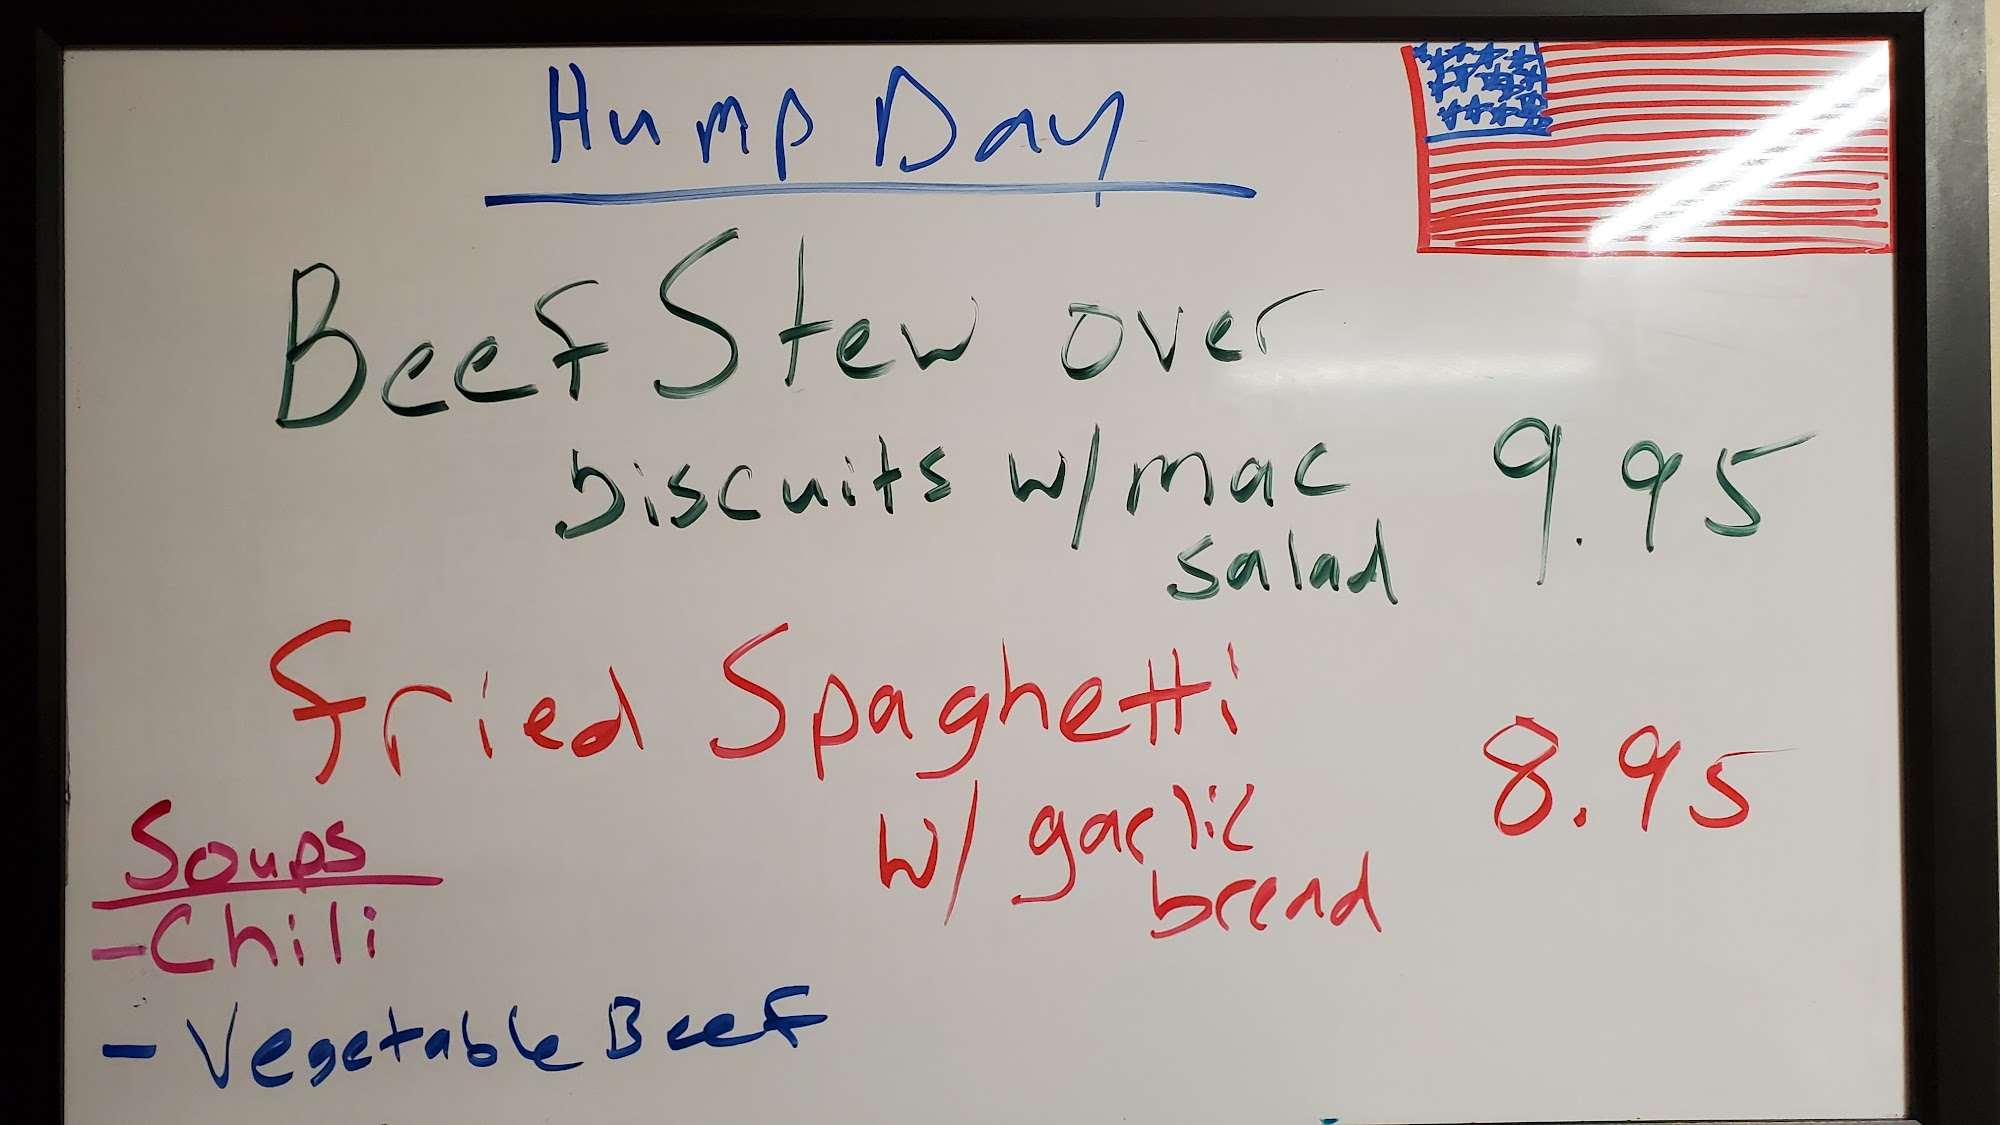 Hump Day
Beef Stew over
biscuits w/ mac
salad
9.95
Fried Spaghetti
w/ garlic
bread
8.95
Soups
- Chili
- Vegetable Beef